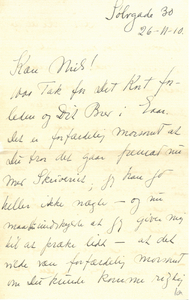 Sølvgade 30
26-11-10.
Kære Niels!
Tak for dit Kort for-
leden og Dit Brev i Gaar.
Det er forfærdelig morsomt at
Du tror det gaar fremad nu
med Skriveriet, jeg kan jo
heller ikke nægte – og nu
maa Du undskylde at jeg giver mig
til at præke lidt – at det
vilde være forfærdelig morsomt
om Du kunde komme rigtig